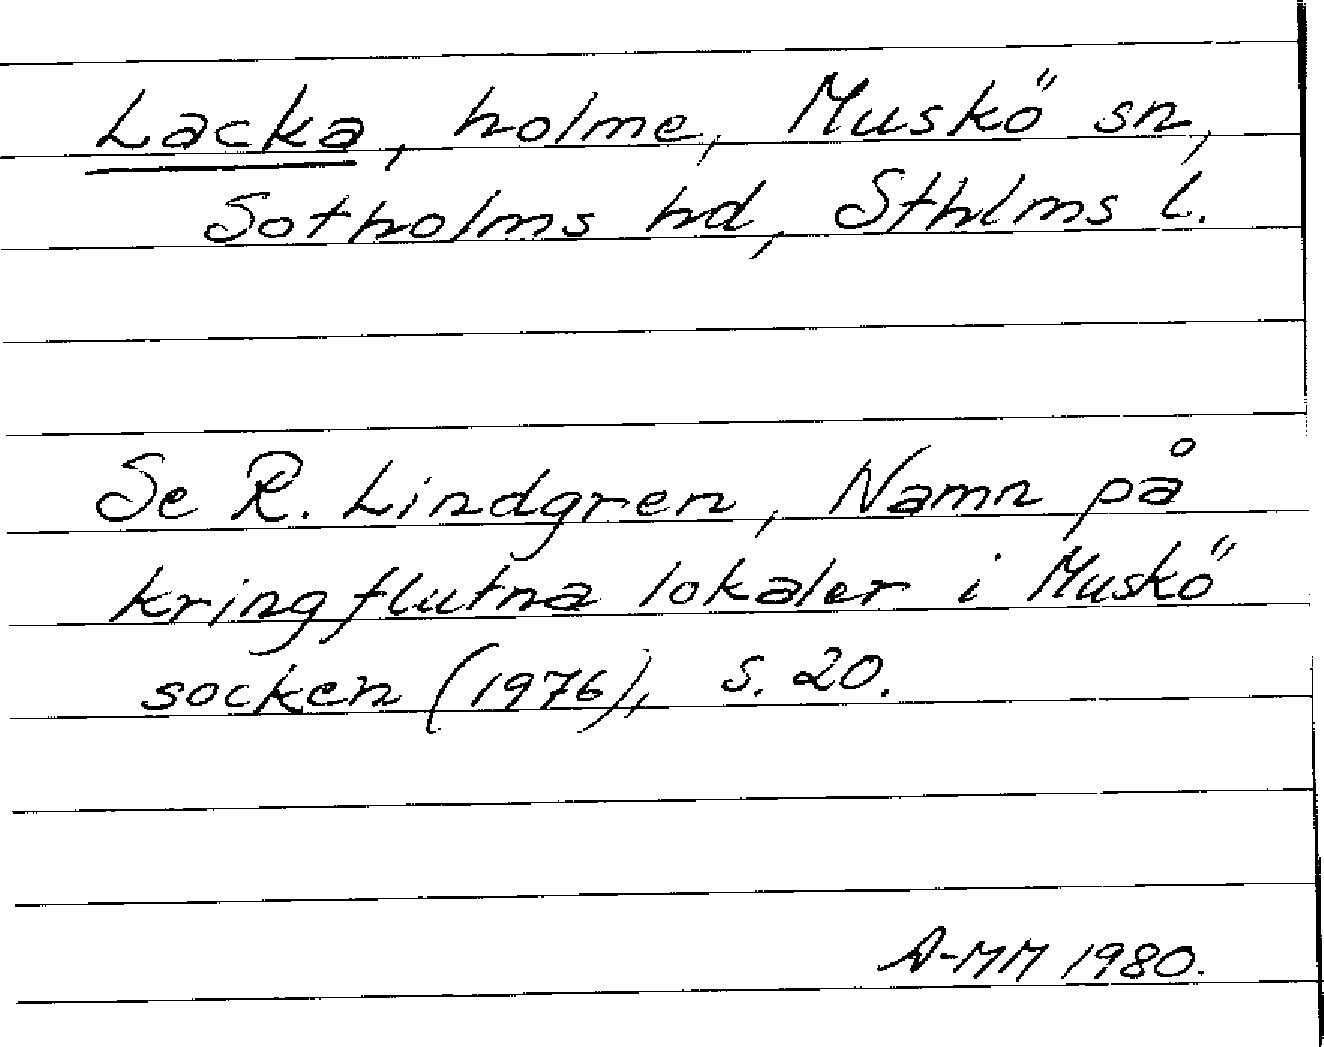 Lacka, holme, Muskö sn,
Sotholms hd, Sthlms l.
Se R. Lindgren, Namn på
kringflutna lokaler i Muskö
socken (1976), s. 20.
A-MM 1980.